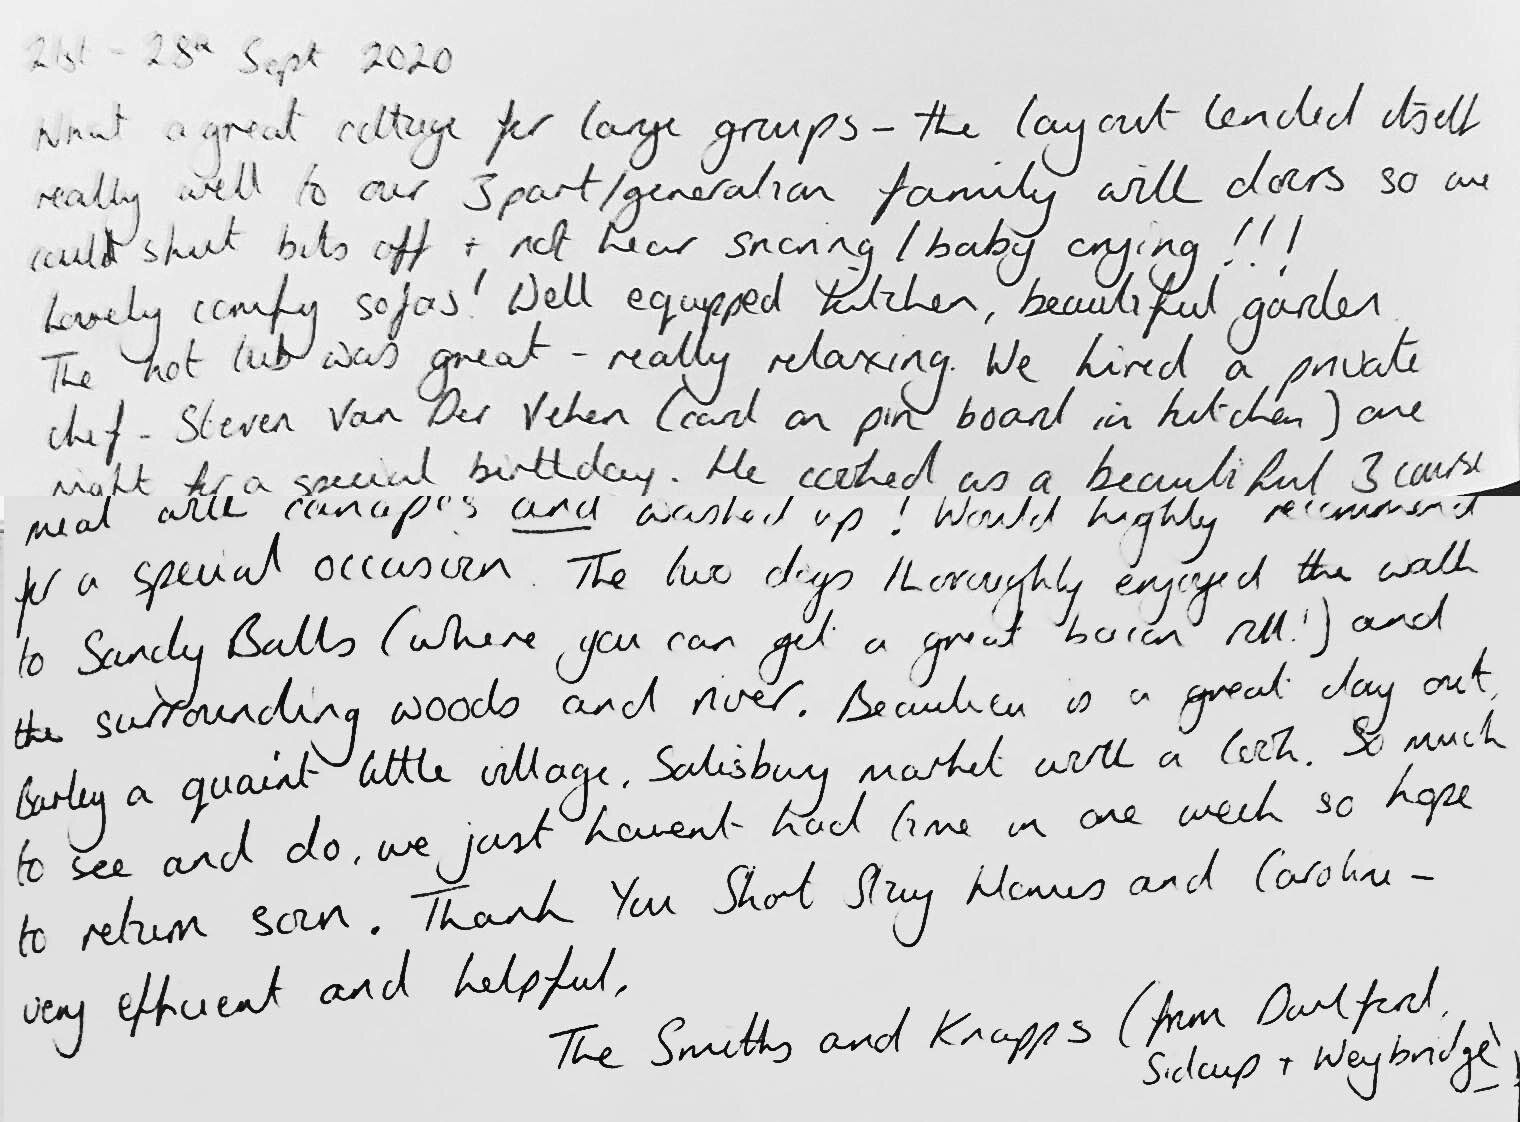 21st - 28th Sept 2020
What a great cottage for large groups - the layout lended itself
really well to our 3 part/generation family with doors so we
could shut bits off + not hear snoring / baby crying !!!
Lovely comfy sofas! Well equipped kitchen, beautiful garden.
The hot tub was great - really relaxing. We hired a private
chef - Steven Van Der Vehen (card on pin board in kitchen) one
night for a special birthday. He cooked us a beautiful 3 course
meal with canapes and washed up! Would highly recommend
for a special occasion. The two dogs thoroughly enjoyed the walk
to Sandy Balls (where you can get a great bacon roll!) and
the surrounding woods and river. Beaulieu is a great day out,
Burley a quaint little village, Salisbury market worth a look. So much
to see and do, we just havent had time in one week so hope
to return soon. Thank You Short Stay Homes and Caroline -
very efficient and helpful.
The Smiths and Knapps (from Dartford,
Sidcup + Weybridge)